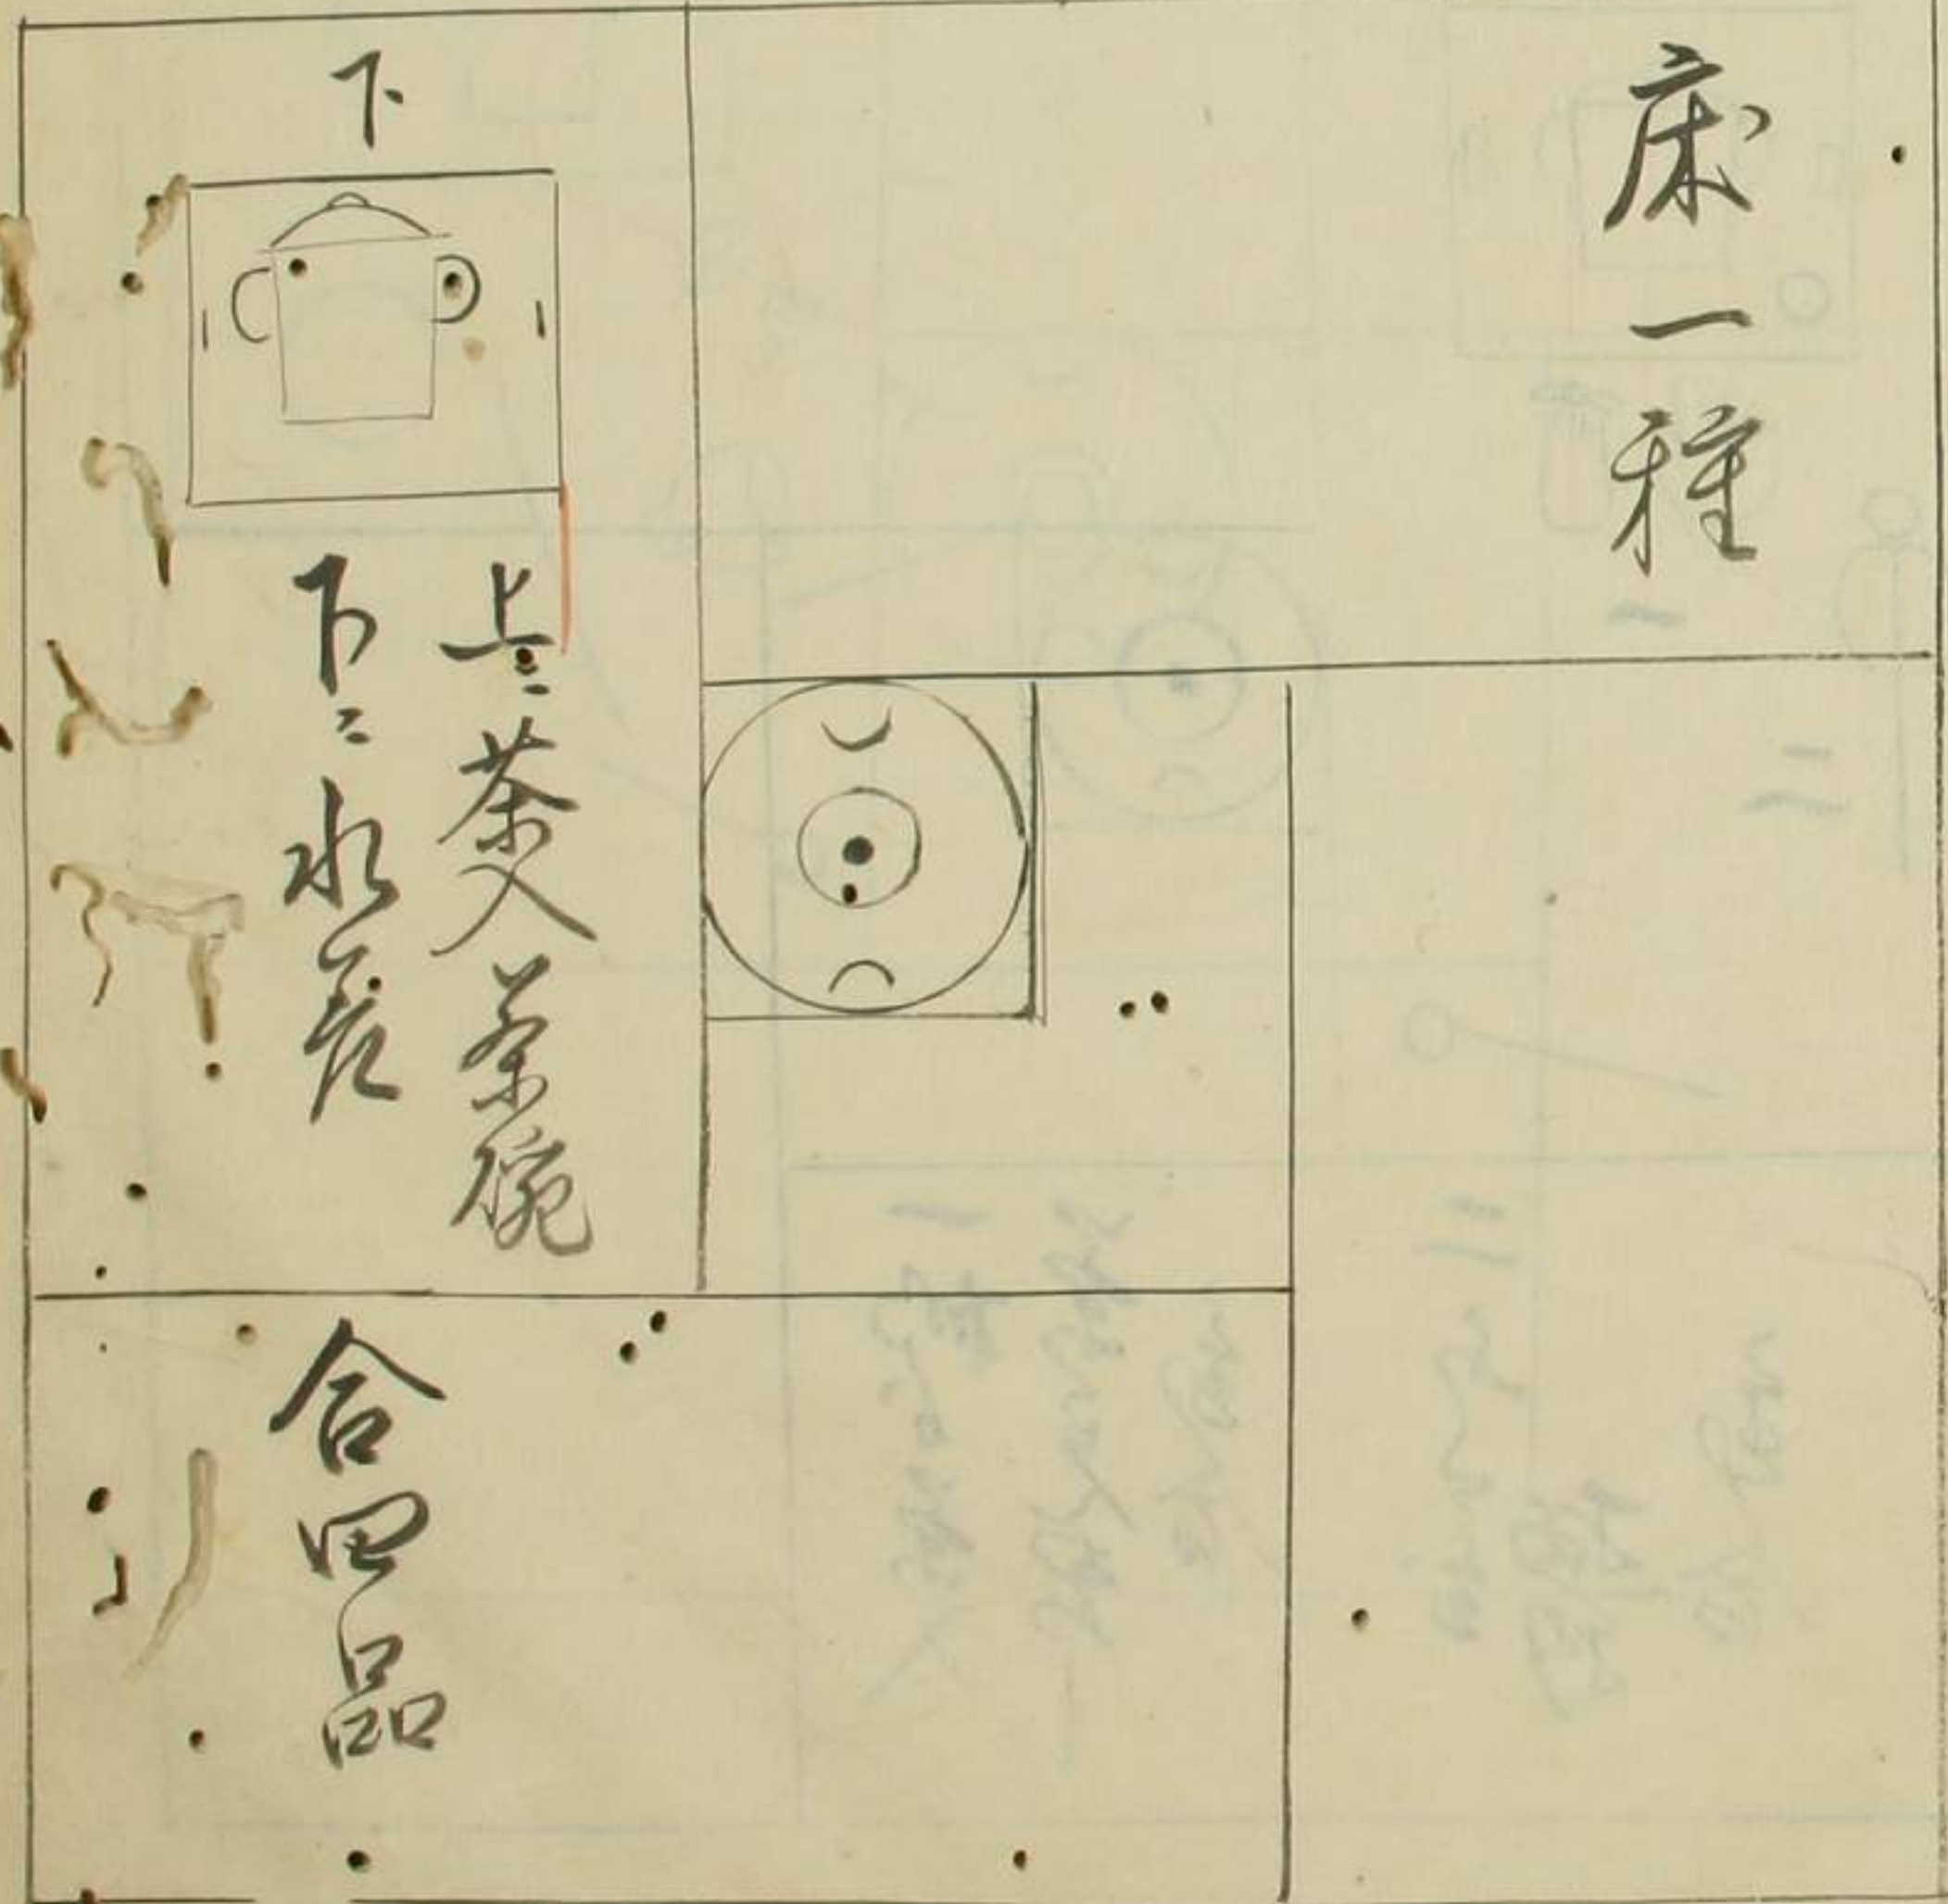 床一種
下
上ニ茶入茶碗
下ニ水差
合四品